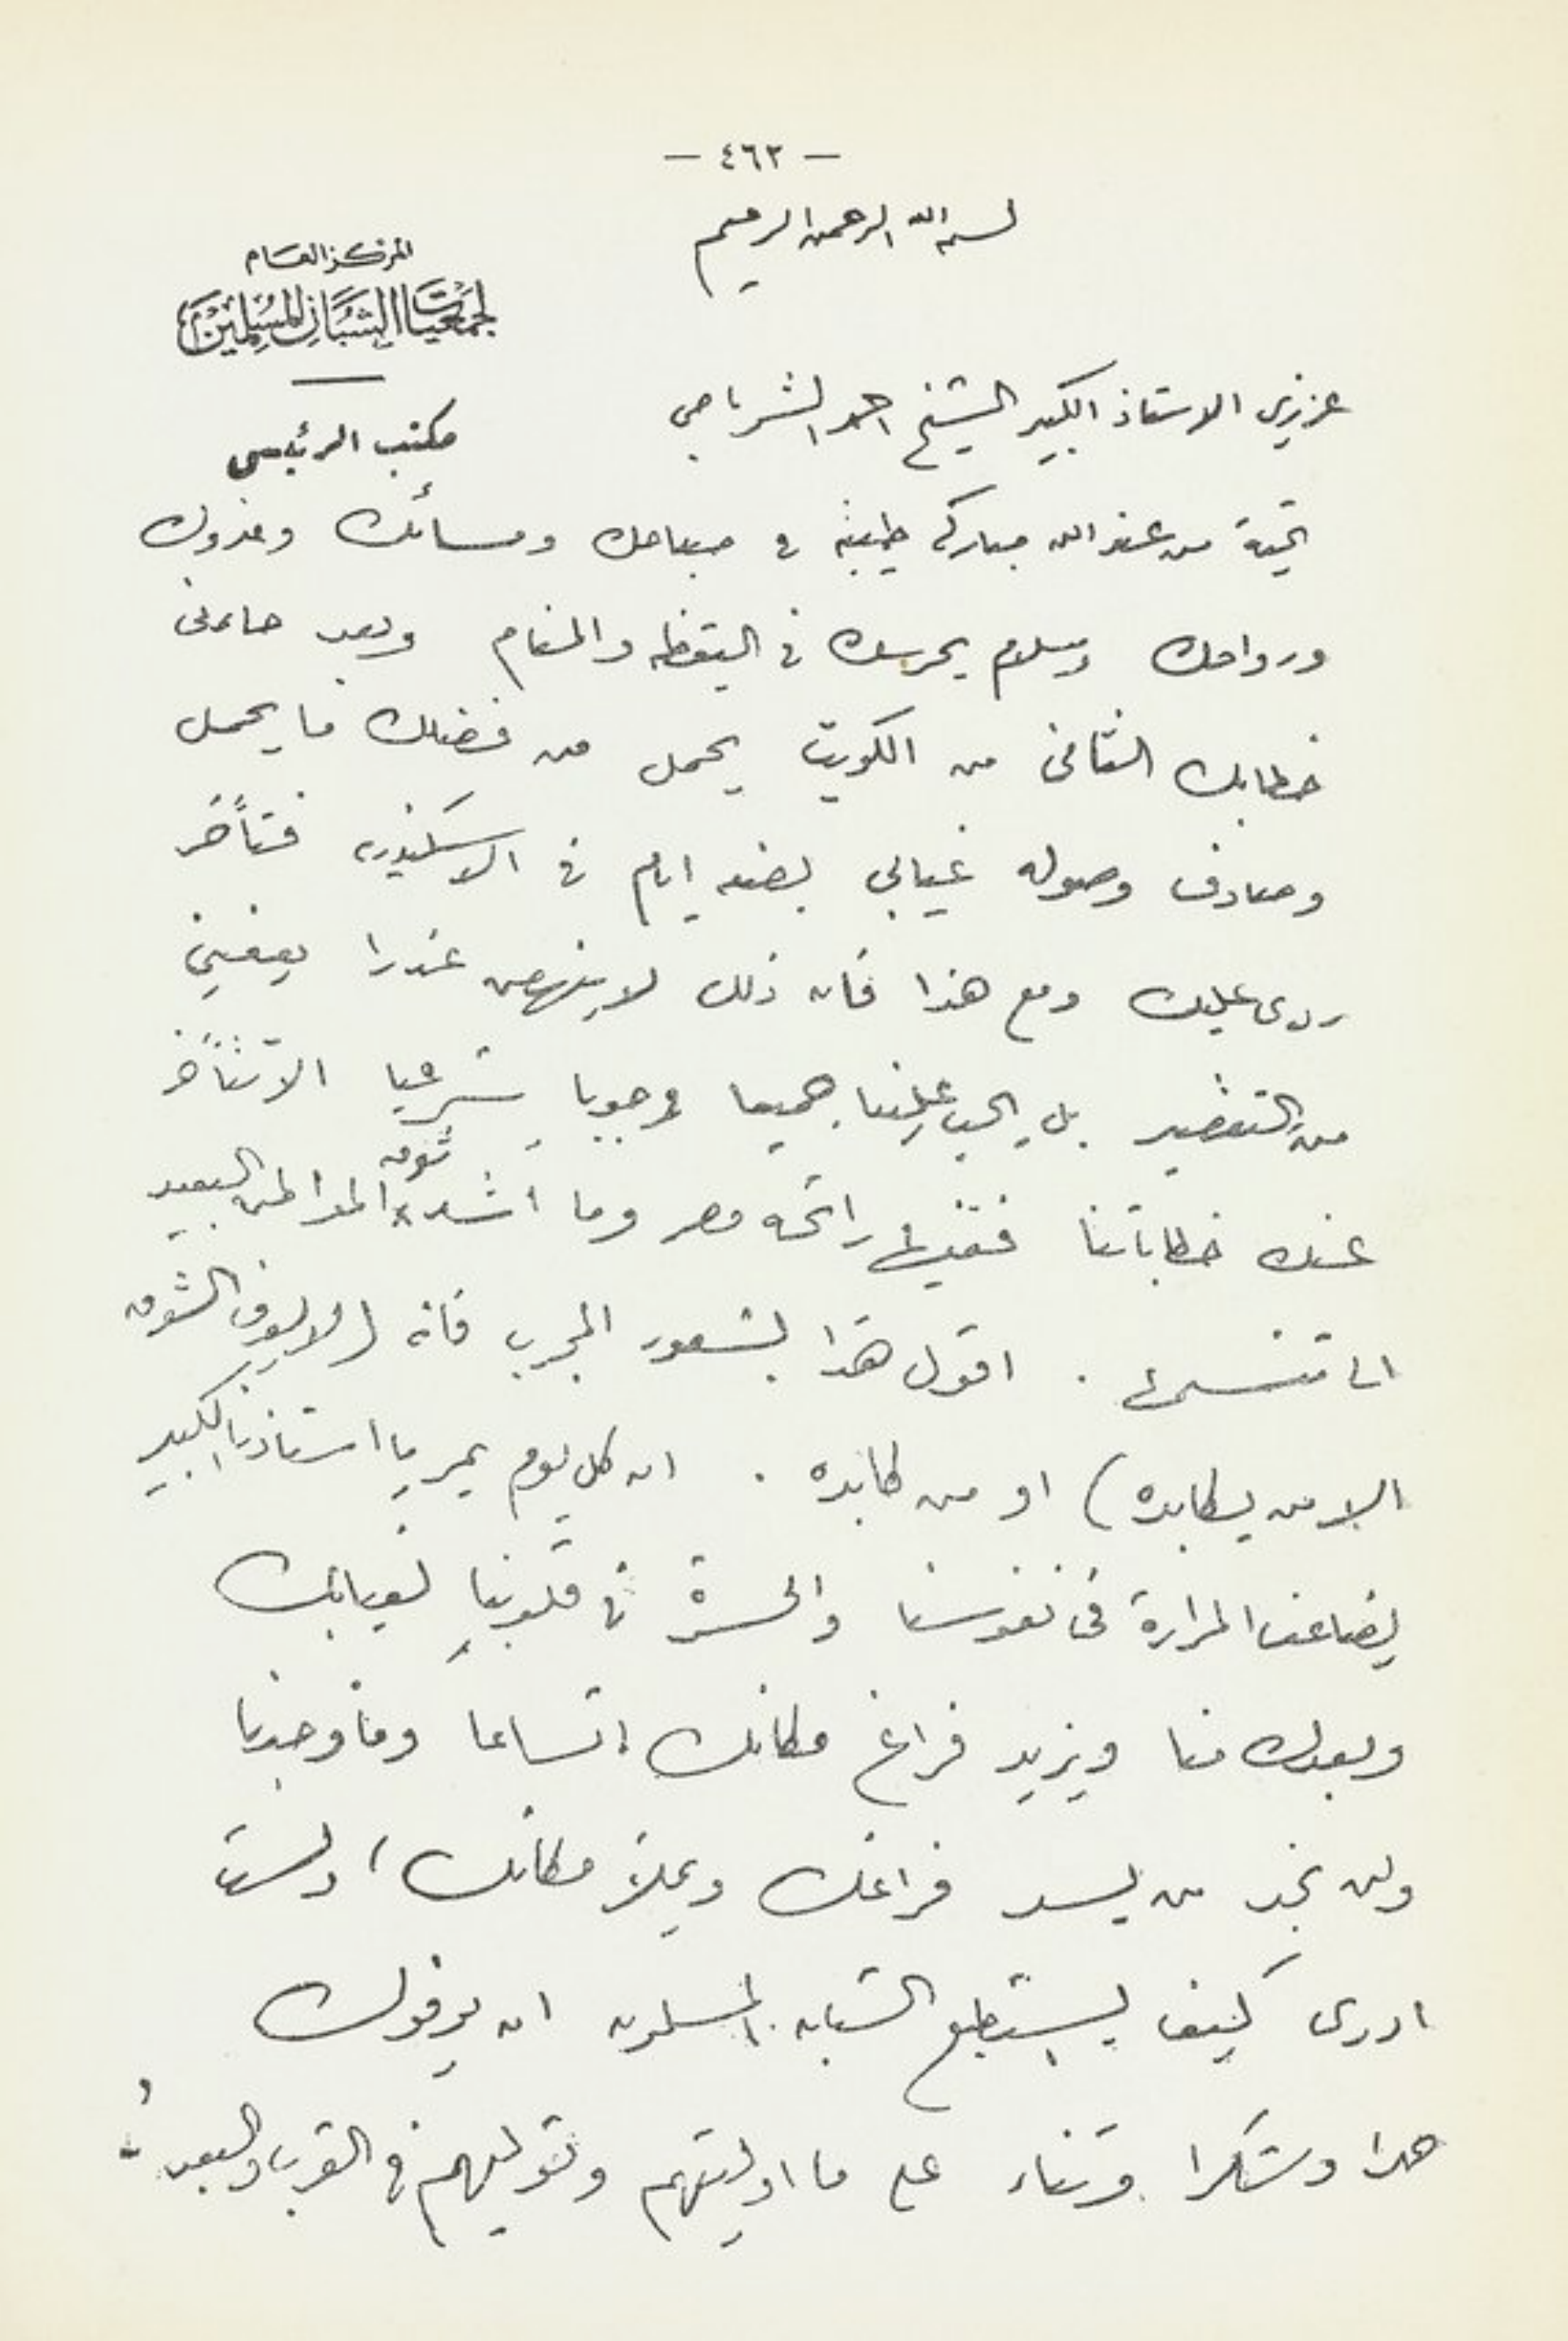 — ٤٦٣ —
بسم الله الرحمن الرحيم
المركز العام
لجمعيات الشبان المسلمين
مكتب الرئيس
عزيزي الاستاذ الكبير الشيخ احمد الشرباصي
تحية من عند الله مباركة طيبة في صباحك ومسائك وغدوك
ورواحك وسلام يحرسك في اليقظة والمنام وبعد جاءني
خطابك الثاني من الكويت يحمل من فضلك ما يحمل
وصادف وصوله غيابي بضعة ايام في الاسكندرية فتأخر
ردى عليك ومع هذا فان ذلك لا ينهض عذرا يعفيني
من التقصير بل يجب علينا جميعا وجوبا شرعيا الا تتأخر
عنك خطاباتنا ففيها رائحة مصر وما أشد شوق المواطن البعيد
الى تنسمها . اقول هذا بشعور المجرب فانه (لا يعرف الشوق
الا من يكابده) او من كابده . ان كل يوم يمر يا استاذنا الكبير
يضاعف المرارة في نفوسنا والحسرة في قلوبنا لغيابك
وبعدك منا ويزيد فراغ مكانك اتساعا وما وجدنا
ولن نجد من يسد فراغك ويملأ مكانك ، ولست
ادرى كيف يستطيع الشبان المسلمون ان يوفوك
حمدا وشكرا وثناء على ما اوليتهم وتوليهم في القرب والبعد